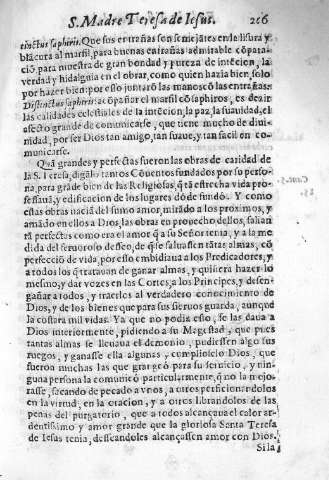 S. Madre Teresa de Iesus. 206
tinctus saphiris. Que sus entrañas son semejātes en le lisura y
blācura al marfil, para buenas entrañas admirable cōpara-
ció para muestra de gran bondad y pureza de intēcion, la
verdad y hidalguia en el obrar, como quien hazia bien, solo
por hazer bien: por esso juntarō las manos cō las entrañas.
Distinctus saphiris: acōpañar el marfil cō saphiros, es dezir
las calidades celestiales de la intēcion, la paz, la suauidad, el
afecto grande de comunicarse, que tiene mucho de diui-
nidad, por ser Dios tan amigo, tan suaue, y tan facil en co-
municarse.
Quā grandes y perfectas fueron las obras de caridad de
la S. Teresa, digālo tantos Cōuentos fundados por su perso-
na, para grāde bien de las Religiosas, q̄ tā estrecha vida pro-
fessauā, y edificacion de los lugares dō de fundó. Y como
estas obras naciā del sumo amor, mirādo a los proximos, y
amādo en ellos a Dios, las obras en prouecho dellos, saliaṅ
tā perfectas como era el amor q̄ a su Señor tenia, y a la me
dida del feruoroso desseo, de q̄ se saluassen tātas almas, cō
perfecció de vida, por esso embidiaua a los Predicadores, y
a todos los q̄ tratauan de ganar almas, y quisiera hazer lo
mesmo, y dar vozes en las Cortes, a los Principes, y desen-
gañar a todos, y traerlos al verdadero conocimiento de
Dios, y de los bienes que para sus sieruos guarda, aunque
la costara mil vidas. Ya que no podia esto, se las daua a
Dios interiormente, pidiendo a su Magestad, que pues
tantas almas se lleuaua el demonio, pudiessen algo sus
ruegos, y ganasse ella algunas, y cumplioselo Dios, que
fueron muchas las que grangeó para su seruicio, y nin-
guna persona la comunicó particularmente, q̄ no la mejo-
rasse, sacando de pecado a vnos, a otros perficionandolos
en la virtud, en la oracion, y a otros librandolos de las
penas del purgatorio, que a todos alcançaua el calor ar-
dentissimo y amor grande que la gloriosa Santa Teresa
de Iesus tenia, desseandoles alcançassen amor con Dios.
Si la